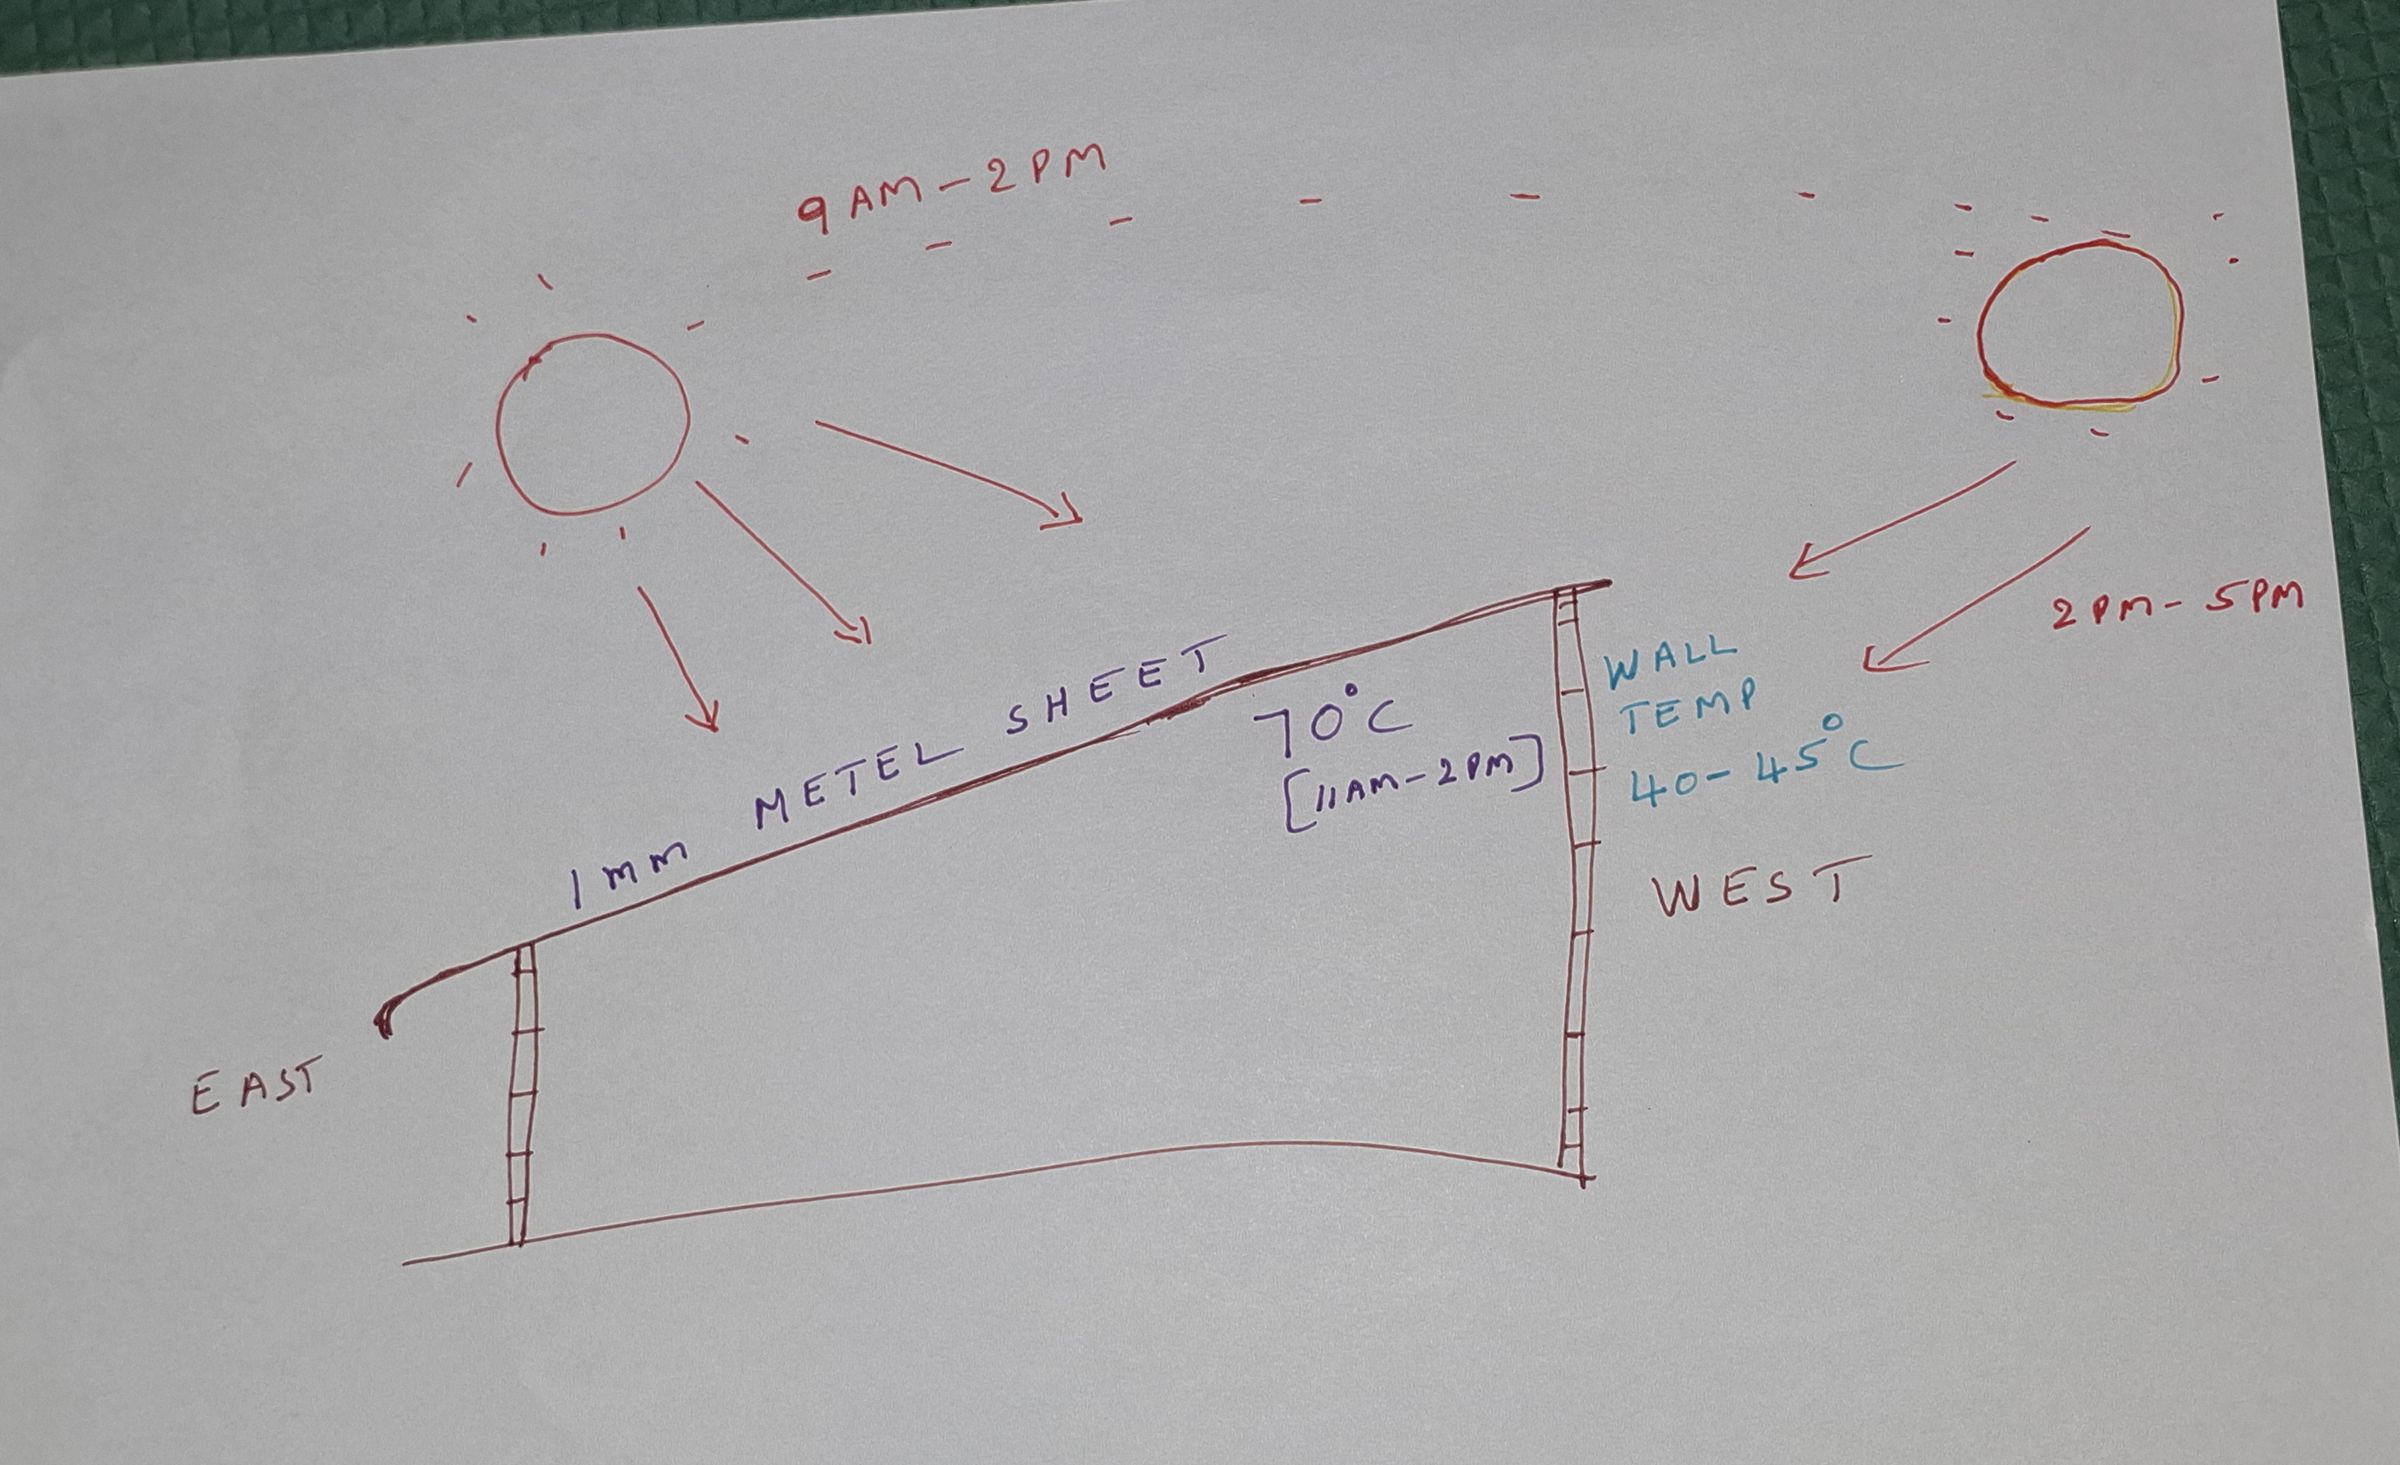 9 AM - 2 PM
2 PM - 5 PM
1 mm METEL SHEET
70°C
[11 AM - 2 PM]
WALL
TEMP
40 - 45°C
WEST
EAST